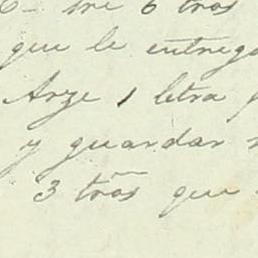 6 tros
que le entrega
Arze 1 letra
y guardar
3 trõs que